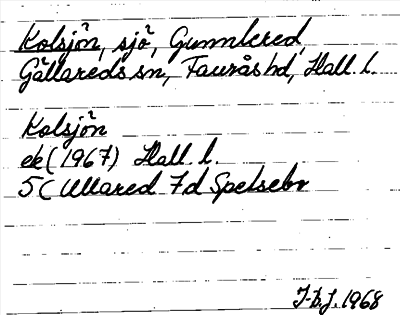 Kolsjön, sjö, Gunnlered,
Gällareds sn, Faurås hd, Hall. l.
Kolsjön
ek (1967) Hall. l.
5C Ullared 7d Spelsebo
J-b.J. 1968